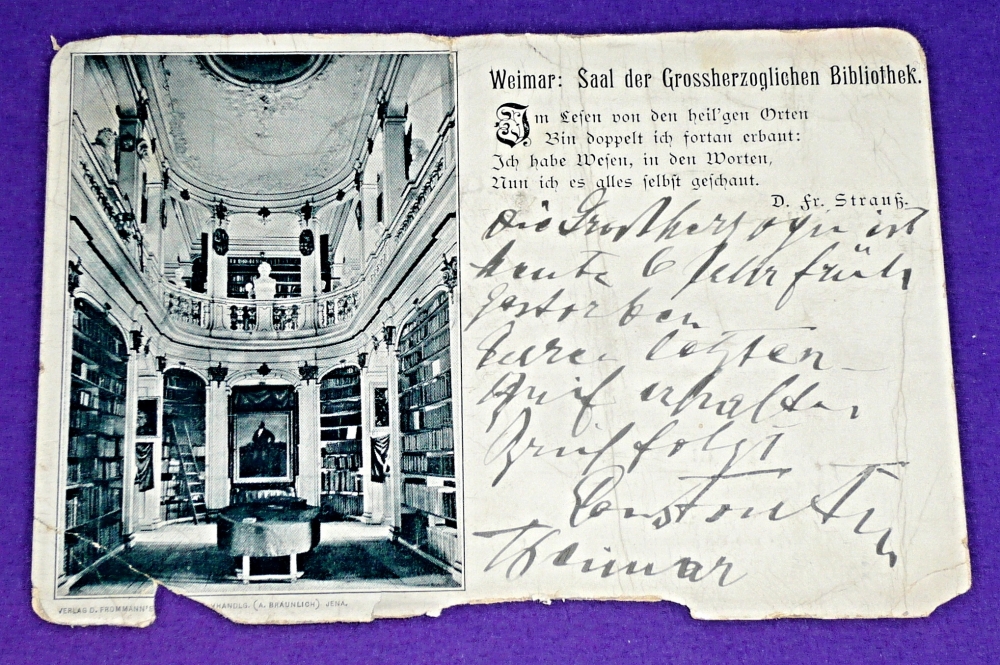 Weimar: Saal der Grossherzoglichen Bibliothek.
Im Lesen von den heil'gen Orten
Bin doppelt ich fortan erbaut:
Ich habe Wesen, in den Worten,
Nun ich es alles selbst geschaut.
D. Fr. Strauß.
die Grossherzogin ist
heute 6 Uhr früh
gestorben
Euren letzten
Brief erhalten
Brief folgt
Weimar
VERLAG D. FROMMANN'S
HANDLG. (A. BRÄUNLICH) JENA.